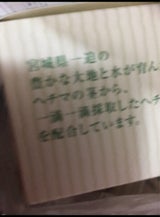 宮城県一迫の
豊かな大地と水が育んだ
ヘチマの茎から、
一滴一滴採取したヘチ
を配合しています。